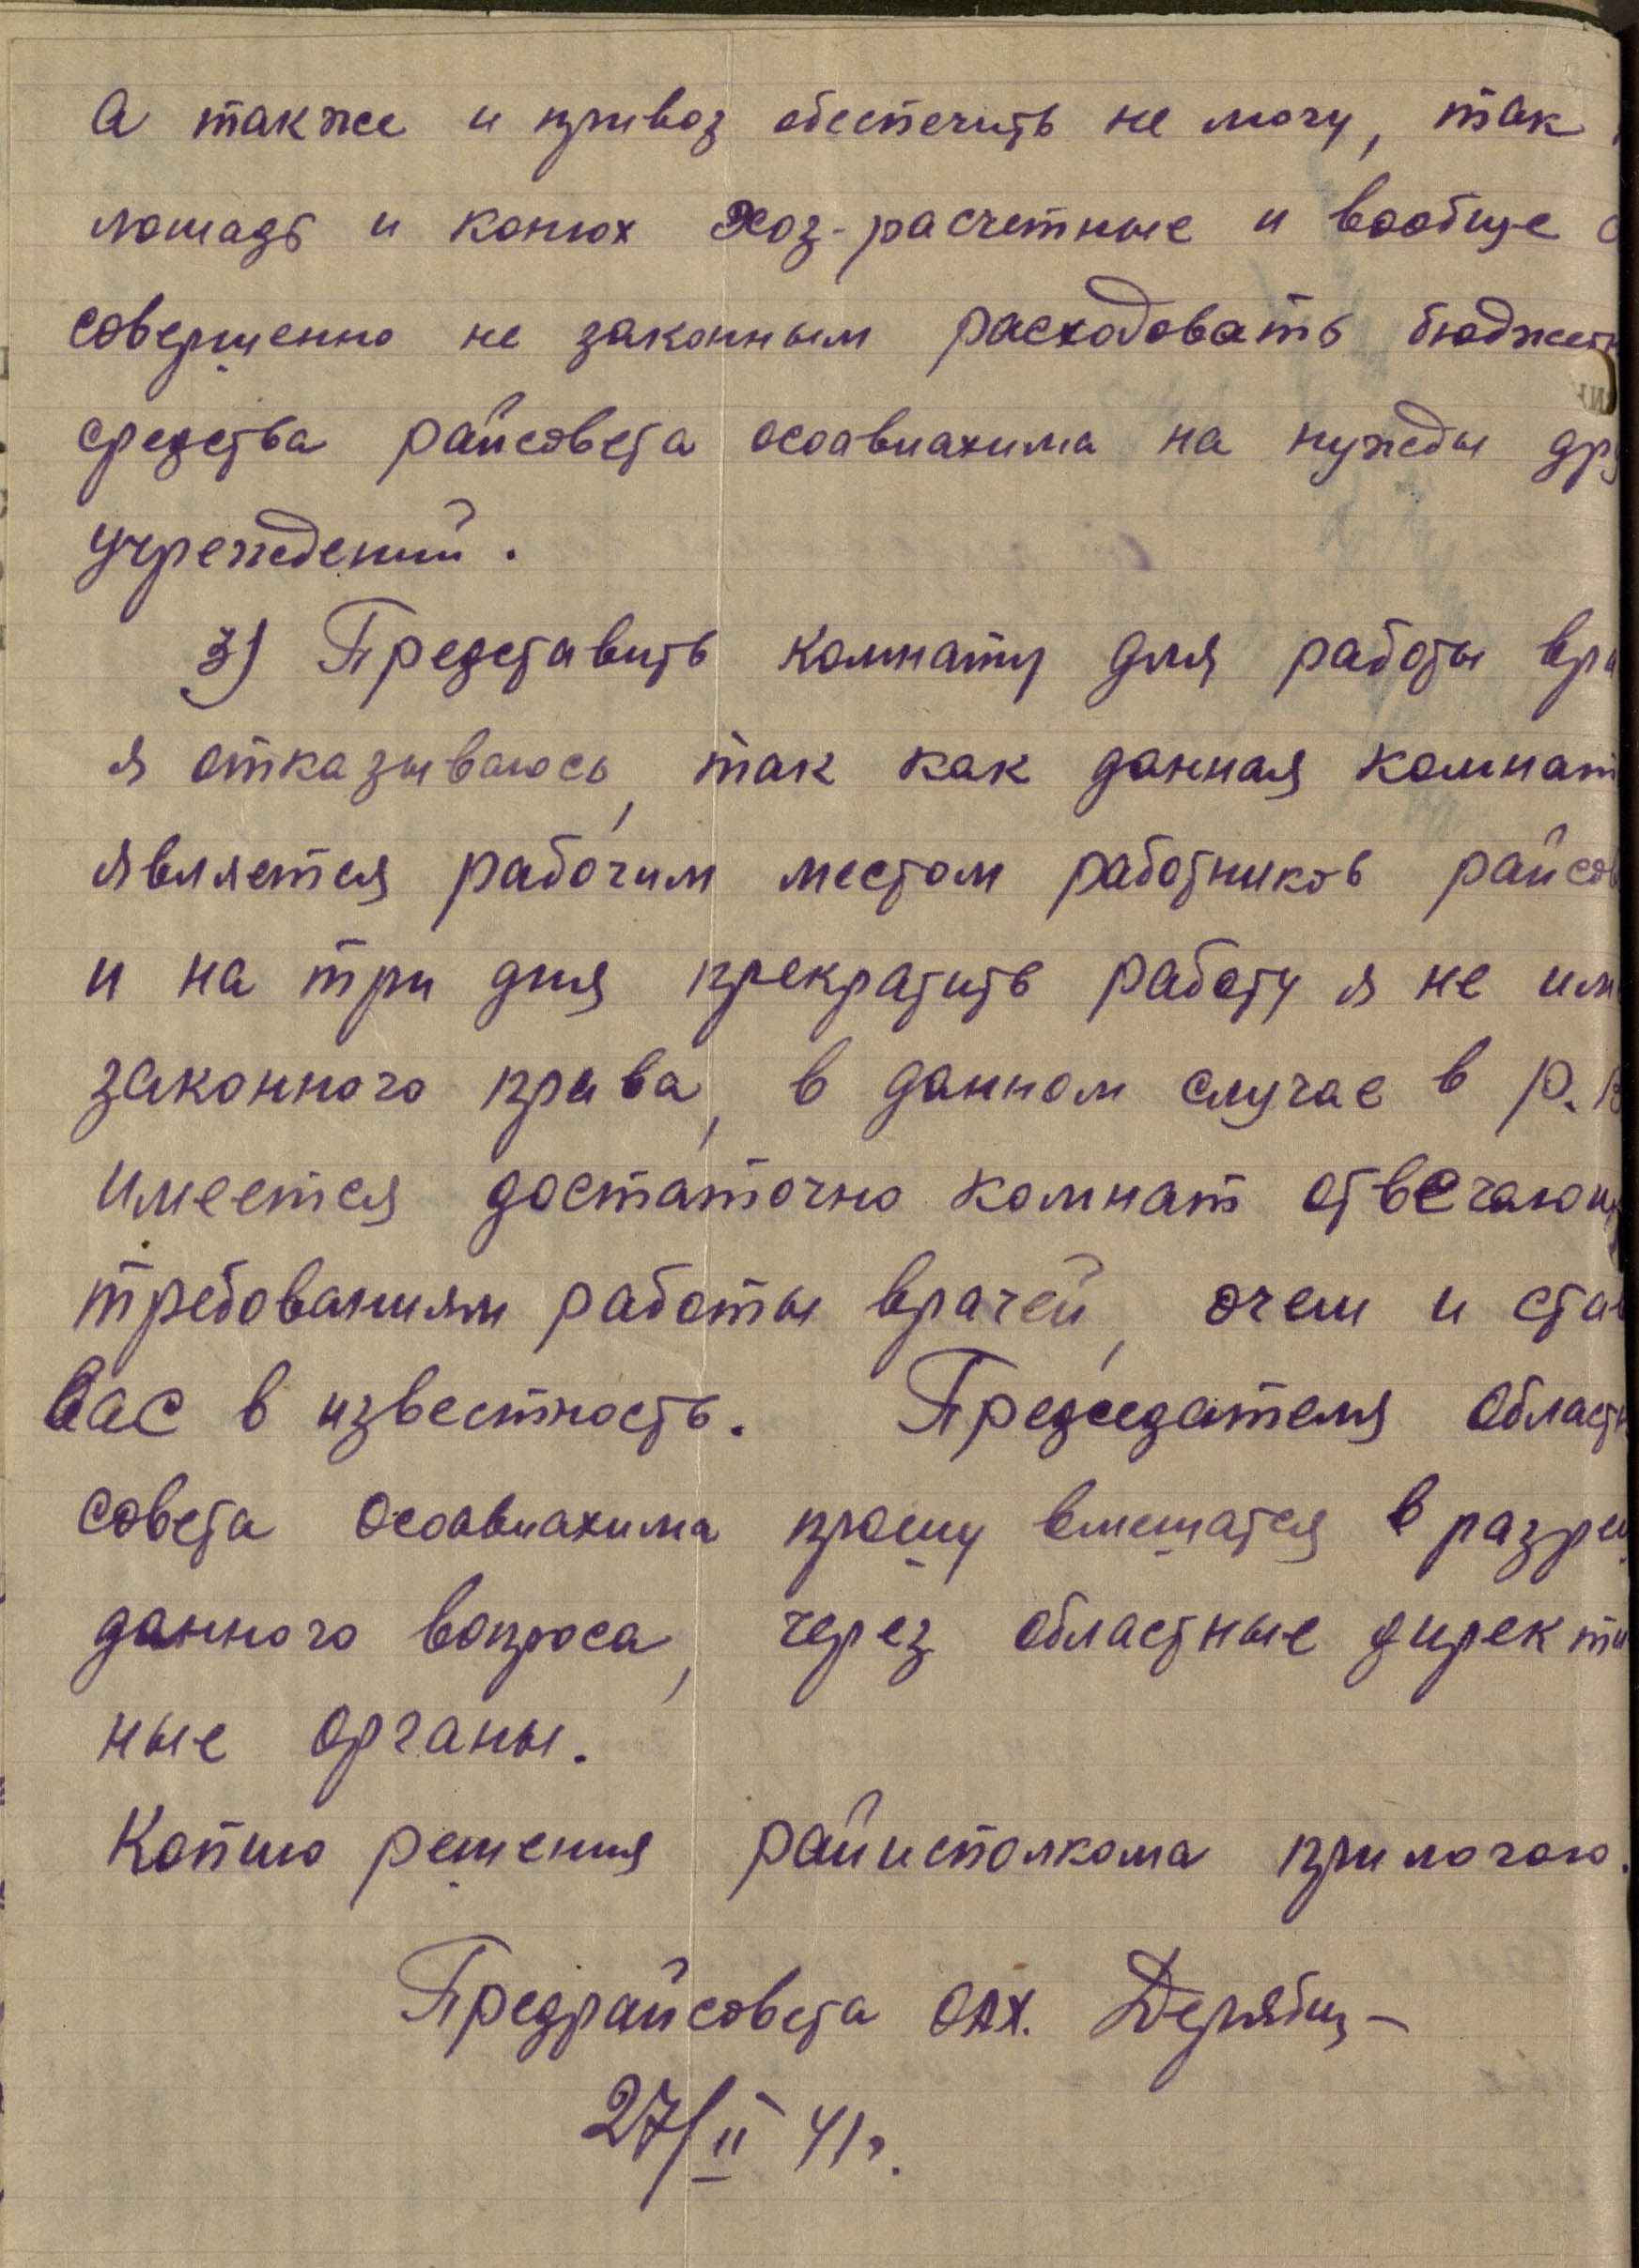 А также и привоз обеспечить не могу, так
лошадь и конюх хоз-расчетные и вообще с
совершенно не законным расходовать бюджетн
средства райсовета осоавиахима на нужды др
учреждений.
3) Представить комнату для работы вра
я отказываюсь, так как данная комнат
является рабочим местом работников райсов
и на три дня прекратить работу я не им
законного права, в данном случае в р.
имеется достаточно комнат отвечающ
требованиям работы врачей, очем и став
вас в известность. Председателя област
совета осоавиахима прошу вмешатся в разреш
данного вопроса, через областные директи
ные органы.
Копию решения райисполкома прилогаю.
Предрайсовета ОАХ.
27/II 41г.